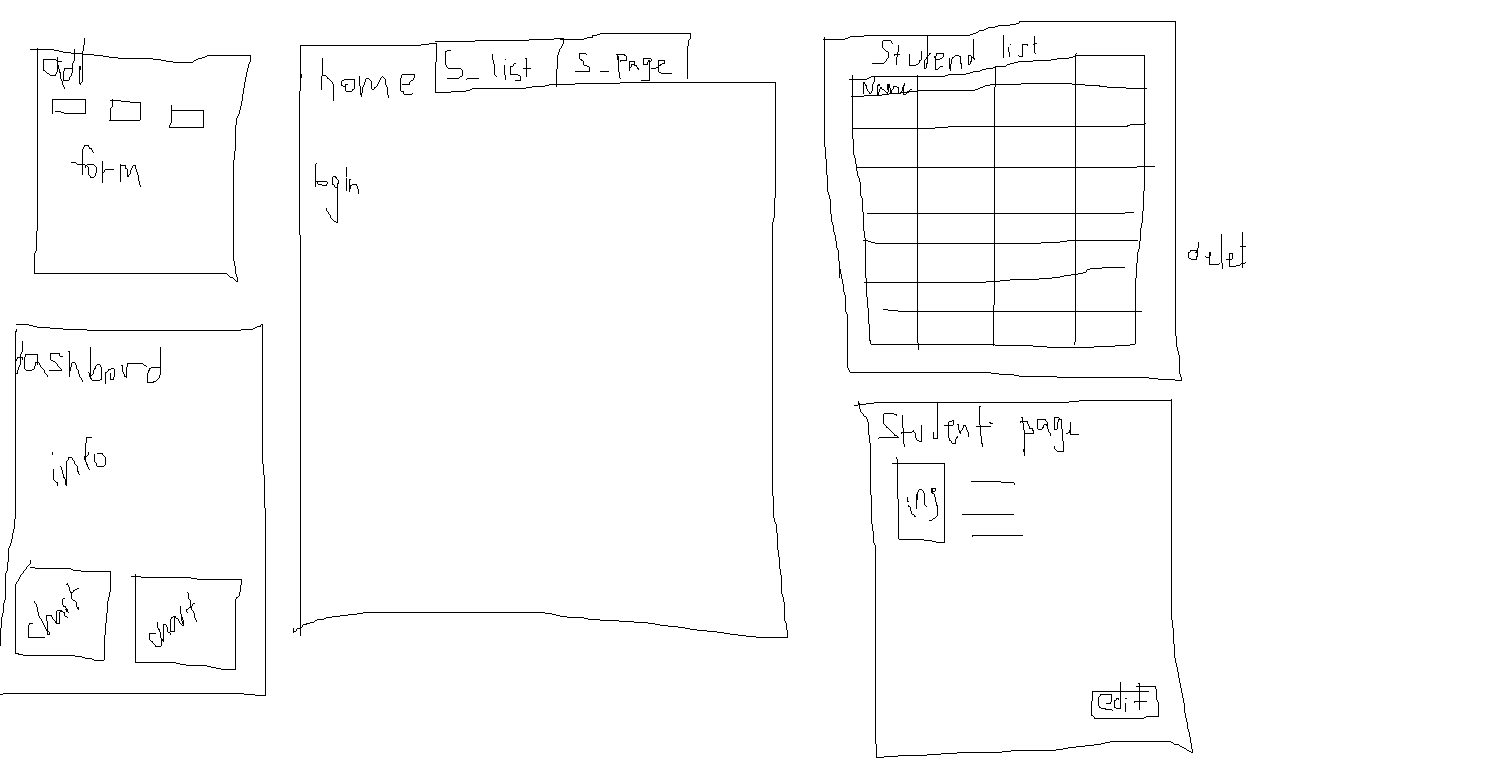 add
form
dashbord
info
chart
chart
home
S_ list
S_page
login
Studend list
Name
delet
Student page
img
edit